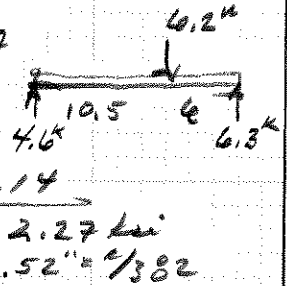 6.2ᵏ
10.5 6
4.6ᵏ 6.3ᵏ
.14
2.27 ksi
.52" = ℓ/382